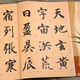 天地玄黃
宇宙洪荒
日月盈昃辰
宿列張寒